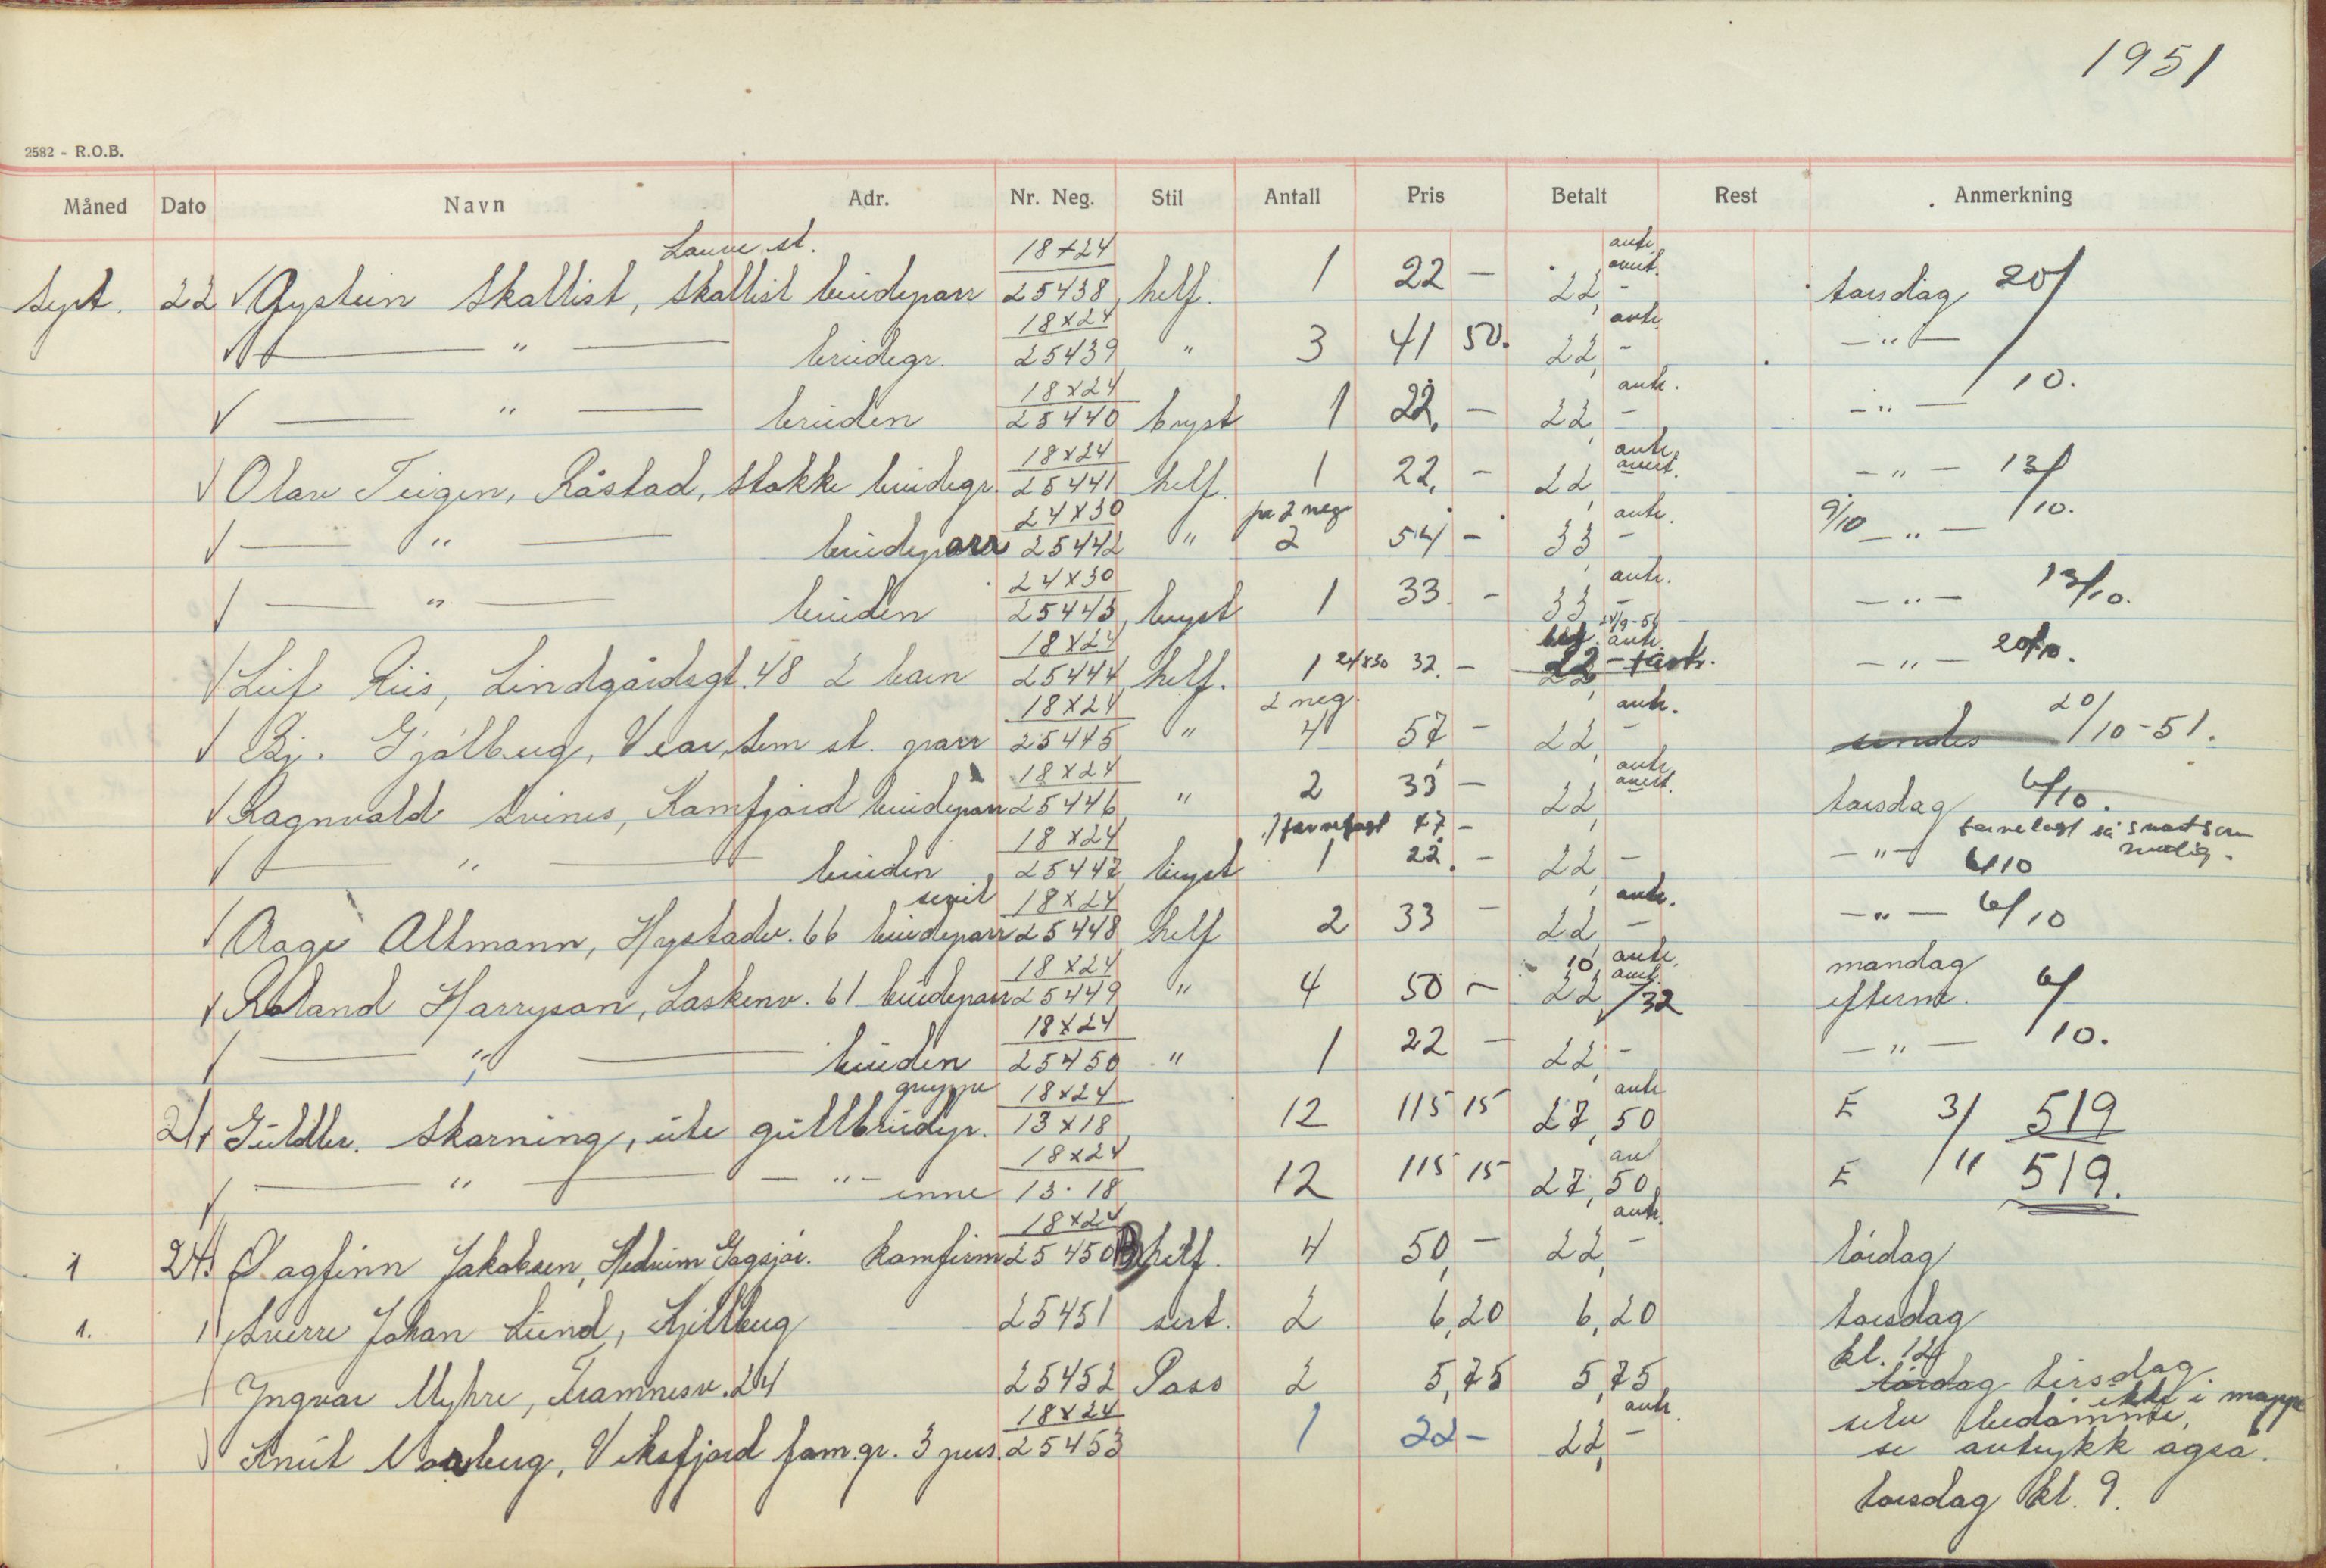 1951
2582 - R.O.B.
Måned Dato Navn Adr. Nr. Neg. Stil Antall Pris Betalt Rest Anmerkning
Lauve st. 18x24 antr.
Sept. 22 Øystein Skallist, Skallist brudeparr 25438 helf. 1 22 - 22,- torsdag 20/
18x24 antr.
— " — brudegr. 25439 " 3 41 50. 22,- - " -
18x24 antr. /10.
— " — bruden 25440 bryst 1 22,- 22,- - " -
18x24 antr.
Olav Teigen, Råstad, Stokke brudegr. 25441 helf. 1 22,- 22,- - " - 13/
24x30 pr 2 neg antr. /10.
— " — brudeparr 25442 " 2 54 - 33,- 9/10 - " -
24x30 antr.
— " — bruden 25443 bryst 1 33 - 33,- - " - 13/10.
18x24 24/9-51 antr.
Leif Riis, Lindgårdsgt. 48 2 barn 25444 helf. 1 24x30 32.- 22 - - " - 20/10.
18x24 2 neg. antr.
Bj. Gjølberg, Vear, Sem st. parr 25445 " 4 57,- 22,- sendes 20/10-51.
18x24 antr.
Ragnvald Svines, Kamfjord brudeparr 25446 " 2 33 - 22, torsdag 6/10.
18x24 1 farvelagt 47,- farvelagt så snart som mulig.
— " — bruden 25447 bryst 1 22.- 22,- - " - 6/10
18x24 antr.
Aage Altmann, Hystadv. 66 brudeparr 25448 helf 2 33 - 22,- - " - 6/10
18x24 10, antr. mandag
Roland Harryson, Laskenv. 61 brudeparr 25449 " 4 50 - 22,/32 efterm. 6/
18x24 /10.
— " — bruden 25450 " 1 22 - 22,- - " -
gruppe 18x24 antr.
24 Guldbr. Skorning, ute gullbrudep. 13x18 12 115 15 27,50 E 3/11 519
18x24
— " — - " - inne 13.18 12 115 15 27,50 E 519.
18x24 antr.
1 24. Dagfinn Jakobsen, Hedrum konfirm 25450B helf. 4 50,- 22,- lørdag
1. Sverre Johan Lund, Kjellberg 25451 sert. 2 6,20 6,20 torsdag
kl. 12
Yngvar Myhre, Framnesv. 24 25452 Pass 2 5,75 5,75 lørdag tirsdag
18x24 antr. ikke i mappe
Knut Norberg, Viksfjord fam.gr. 3 pers. 25453 1 22 - 22,- selv bedømme,
se avtrykk også.
torsdag kl. 9.